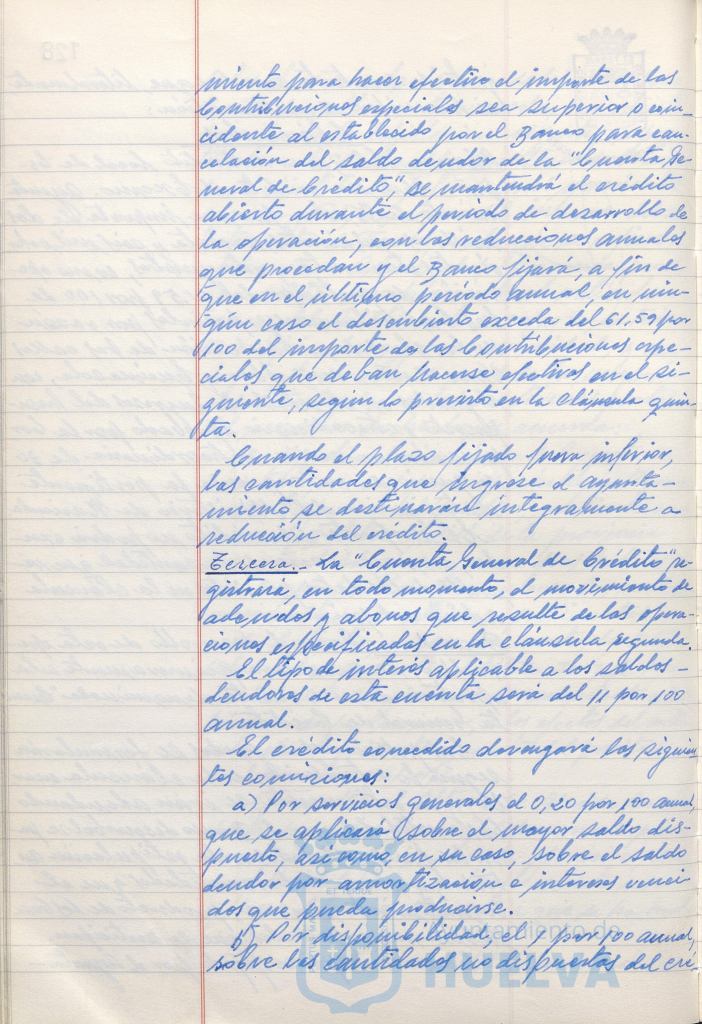 miento para hacer efectivo el importe de las
Contribuciones especiales sea superior o coin-
cidente al establecido por el Banco para can-
celación del saldo deudor de la "Cuenta Ge-
neral de Crédito", se mantendrá el crédito
abierto durante el período de desarrollo de
la operación, con las reducciones anuales
que procedan y el Banco fijará, a fin de
que en el último período anual, en nin-
gún caso el descubierto exceda del 61,59 por
100 del importe de las Contribuciones espe-
ciales que deban hacerse efectivas en el si-
guiente, según lo previsto en la cláusula quin-
ta.
Cuando el plazo fijado fuera inferior,
las cantidades que ingrese el ayunta-
miento se destinarán íntegramente a
reducción del crédito.
Tercera.- La "Cuenta General de Crédito" re-
gistrará, en todo momento, el movimiento de
adeudos y abonos que resulte de las opera-
ciones especificadas en la cláusula segunda.
El tipo de interés aplicable a los saldos -
deudores de esta cuenta será del 11 por 100
anual.
El crédito concedido devengará las siguien-
tes comisiones:
a) Por servicios generales el 0,20 por 100 anual,
que se aplicará sobre el mayor saldo dis-
puesto, así como, en su caso, sobre el saldo
deudor por amortización e intereses venci-
dos que pueda producirse.
b) Por disponibilidad, el 1 por 100 anual,
sobre las cantidades no dispuestas del cré-
Ayuntamiento de
HUELVA
128